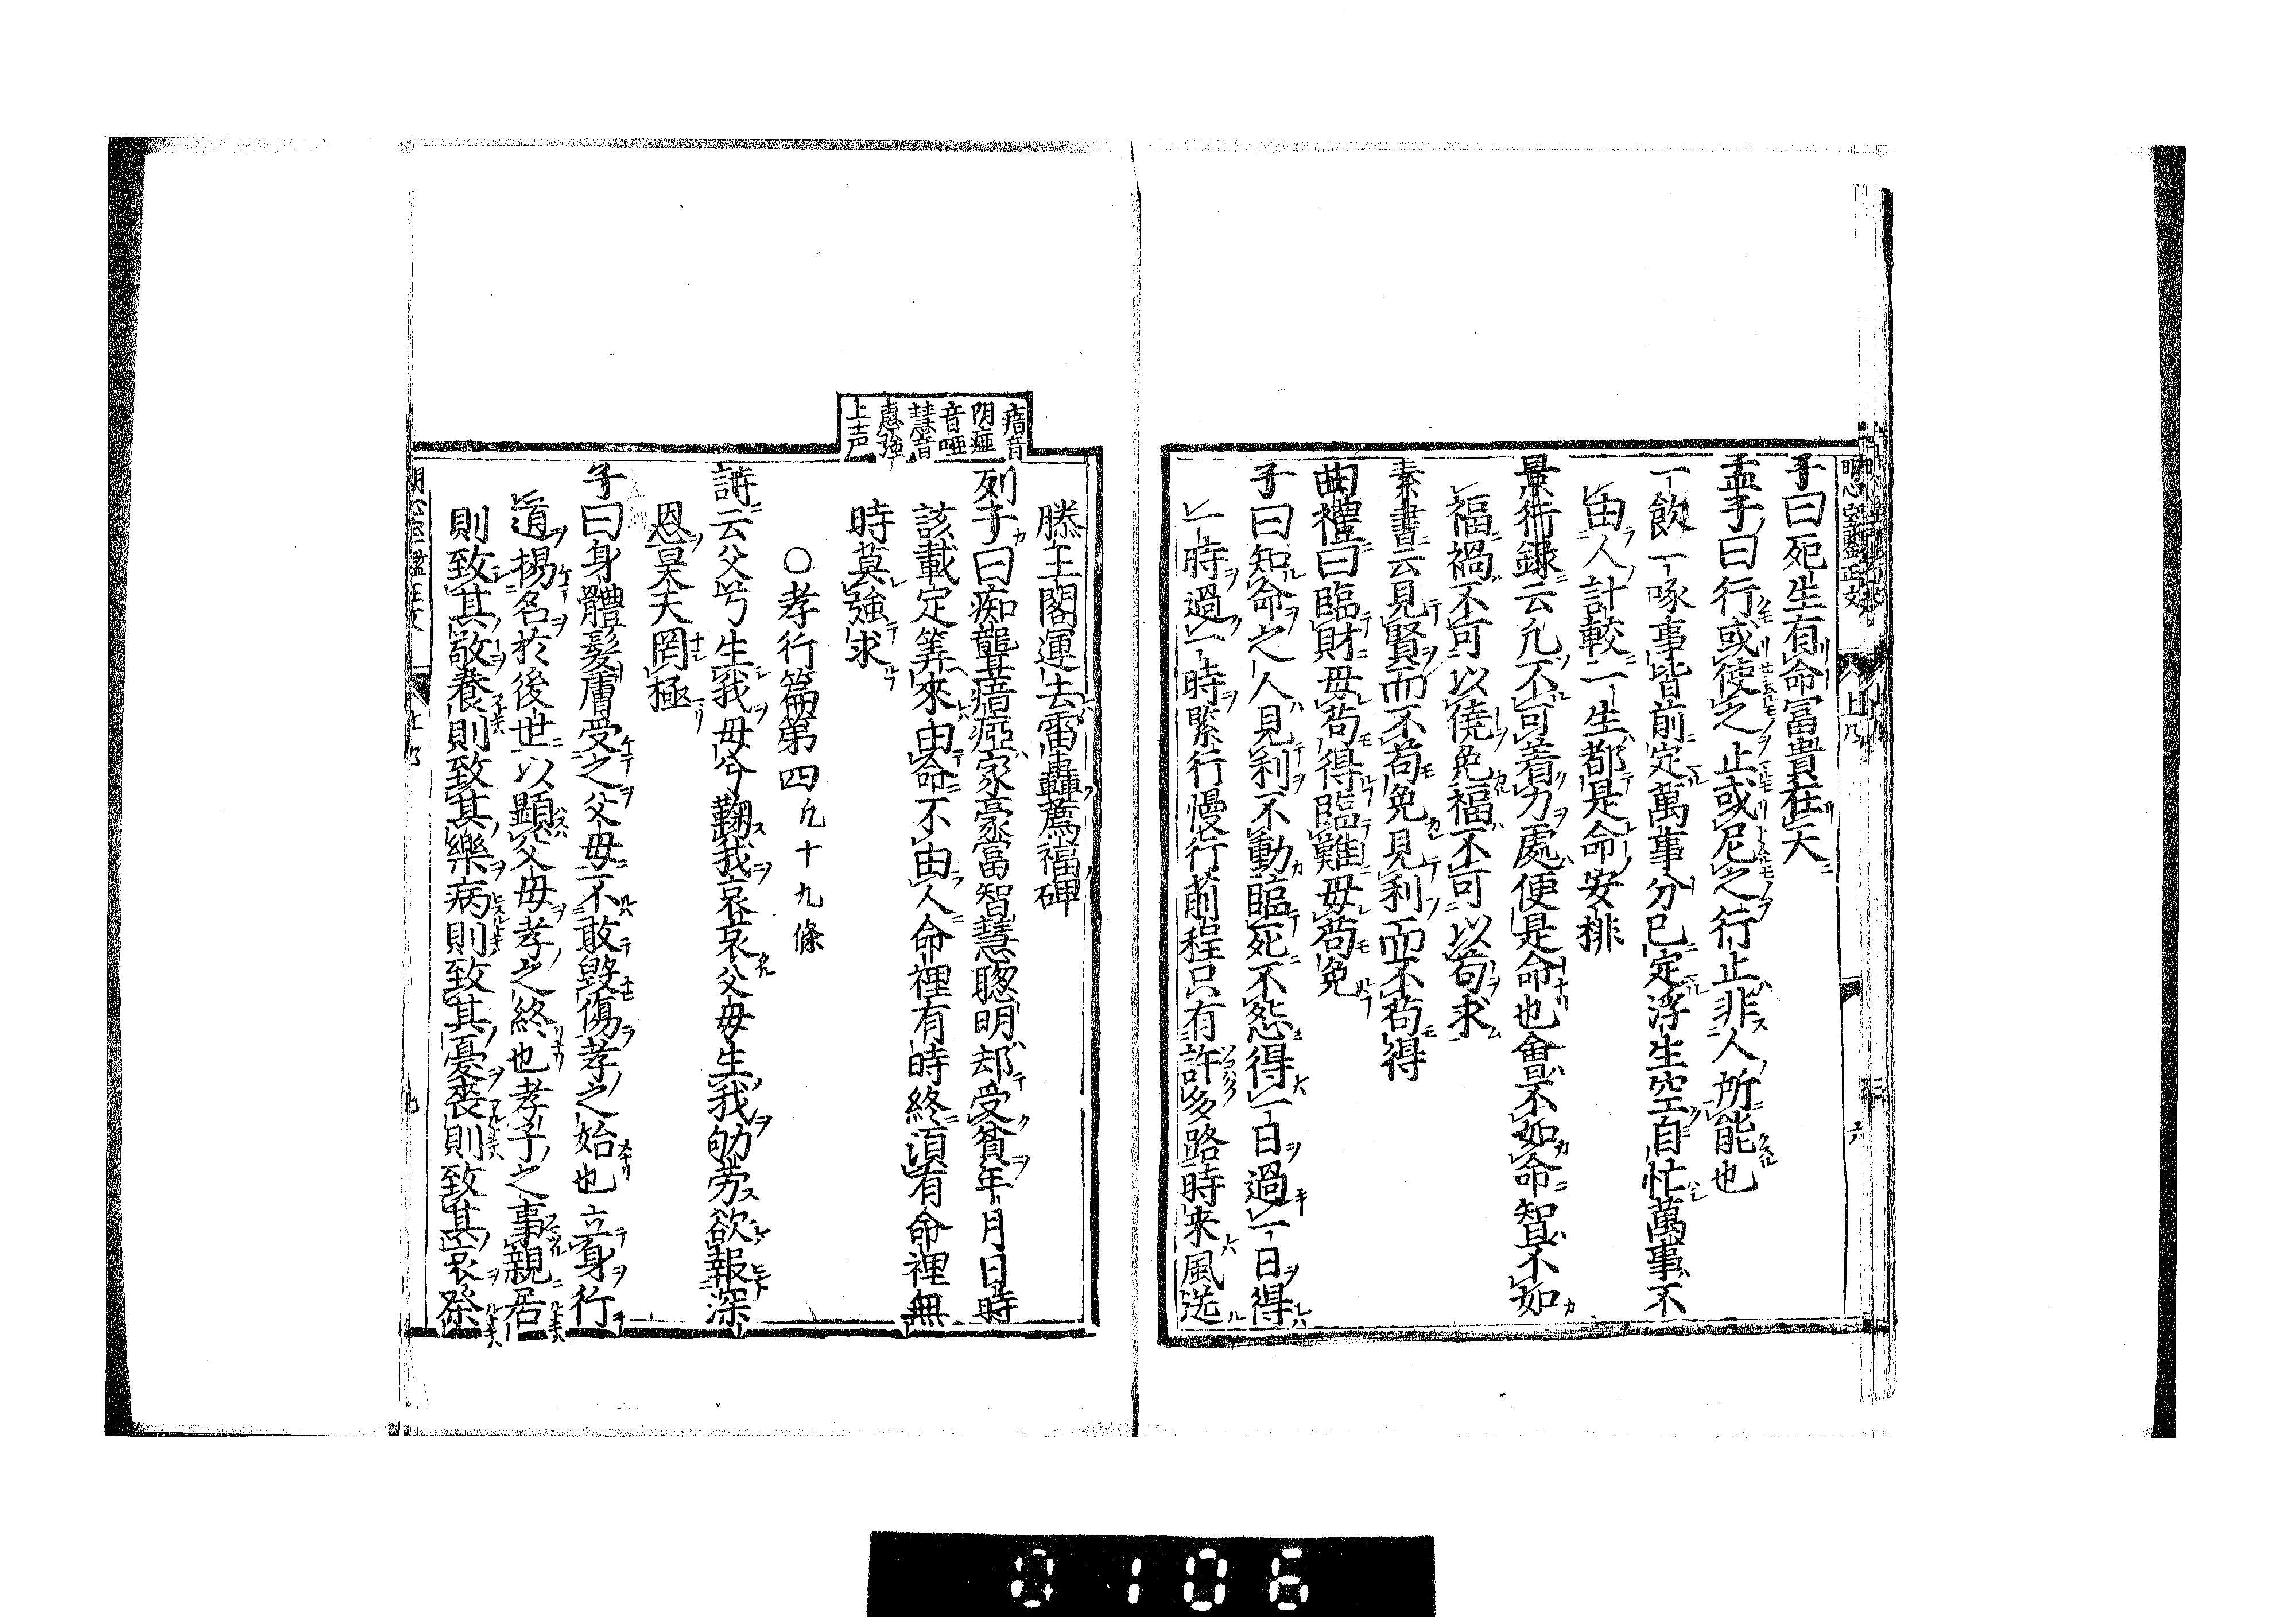 子曰死生有命冨貴在天
孟子曰行或使之止或尼之行止非人所能也
一飲一啄事皆前定萬事分已定浮生空自忙萬事不
由人計較一生都是命安排
景行録云凢不可着力處便是命也會不如命智不如
福禍不可以僥免福不可以苟求
素書云見賢而不苟免見利而不苟得
曲禮曰臨財毋苟得臨難毋苟免
子曰知命之人見利不動臨死不怨得一日過一日得
一時過一時緊行慢行前程只有許多路時来風送
瘖音
阴瘂
音唖
慧音
惠強
上声
滕王閣運去雷轟薦福碑
列子曰痴聾瘖瘂家豪富智慧聰明却受貧年月日時
該載定筭來由命不由人命裡有時終湏有命裡無
時莫強求
○孝行篇第四凢十九條
詩云父兮生我母兮鞠我哀哀父母生我劬劳欲報深
恩昊天罔極
子曰身體髮膚受之父母不敢毀傷孝之始也立身行
道揚名於後世以顯父母孝之終也孝子之事親居
則致其敬養則致其樂病則致其憂喪則致其哀祭
0106